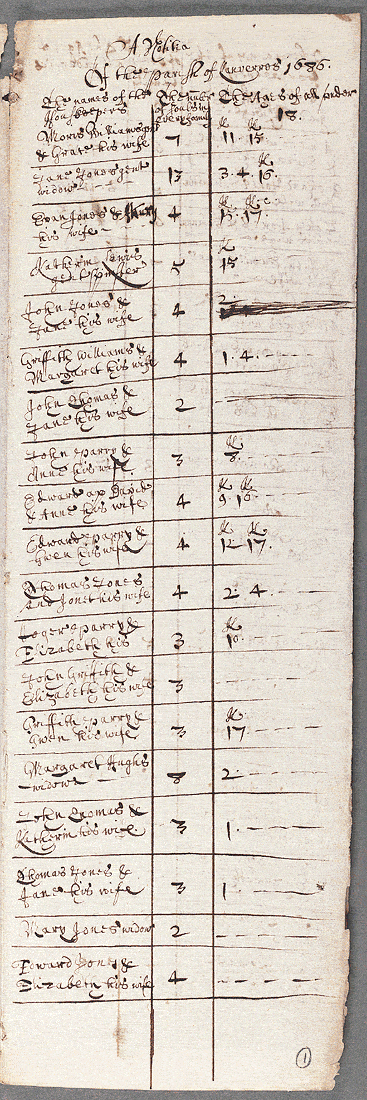 A Notitia
Of the parish of Lanverres 1686.
The names of the The number The Ages of all under
housekeepers of souls in 18.
every family
Morris Williams gent K K
& Grace his wife 7 11. 15.
Jane Jones gent K
widow 13 3. 4. 16.
Evan Jones & Mary K K
his wife 4 15. 17.
Katherin Lewis K
gent spinster 5 15
John Jones & 2.
Jane his wife 4
Griffith Williams & 4 1. 4.
Margaret his wife
John Thomas & 2
Jane his wife
John parry & K
Anne his wife 3 8.
Edward ap David K K
& Anne his wife 4 9. 16.
Edward parry & K K
Gwen his wife 4 12. 17.
Thomas Jones 4 2. 4.
And Jonet his wife
Roger parry & K
Elizabeth his 3 10.
John Griffith & 3
Elizabeth his wife
Griffith parry & K
Gwen his wife 3 17.
Margaret Hughs 8 2.
widow
John Thomas & 3 1.
Katherin his wife
Thomas Jones & 3 1.
Jane his wife
Mary Jones widow 2
Edward Jones & 4
Elizabeth his wife
1